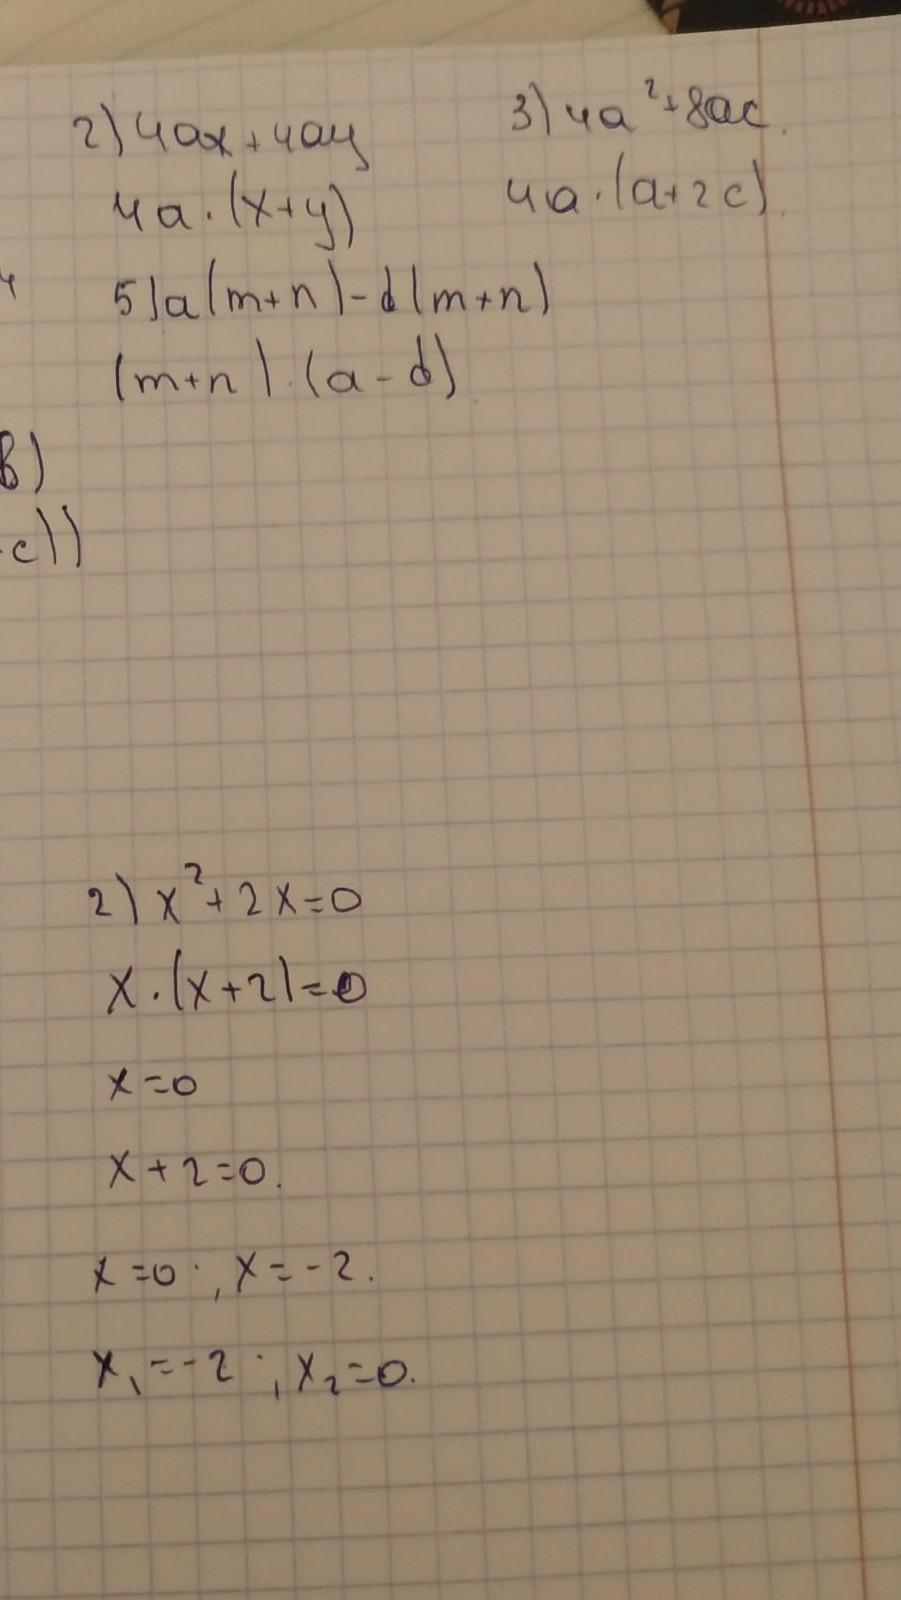 2) 4ax + 4ay
4a · (x+y)
3) 4a² + 8ac
4a · (a+2c)
5) a(m+n) - d(m+n)
(m+n) · (a - d)
в)
c))
2) x² + 2x = 0
x · (x+2) = 0
x = 0
x + 2 = 0.
x = 0 ; x = -2.
x₁ = -2 ; x₂ = 0.